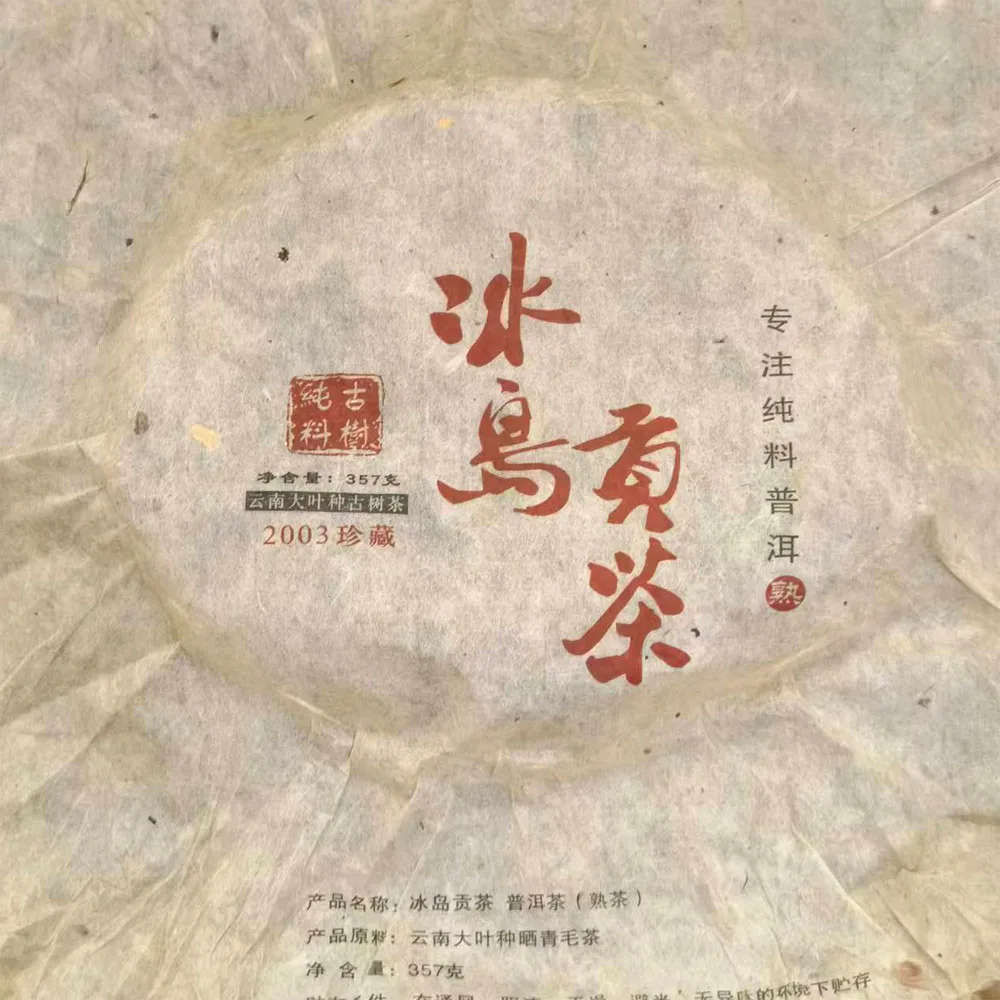 冰岛
贡茶
专注纯料普洱
熟
古樹
純料
净含量：357克
云南大叶种古树茶
2003珍藏
产品名称：冰岛贡茶 普洱茶（熟茶）
产品原料：云南大叶种晒青毛茶
净 含 量：357克
无异味的环境下贮存